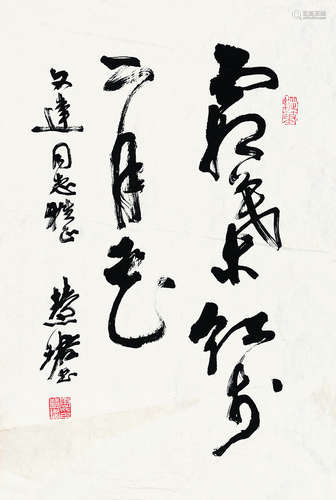 霜叶红于
二月花
文达同志雅正